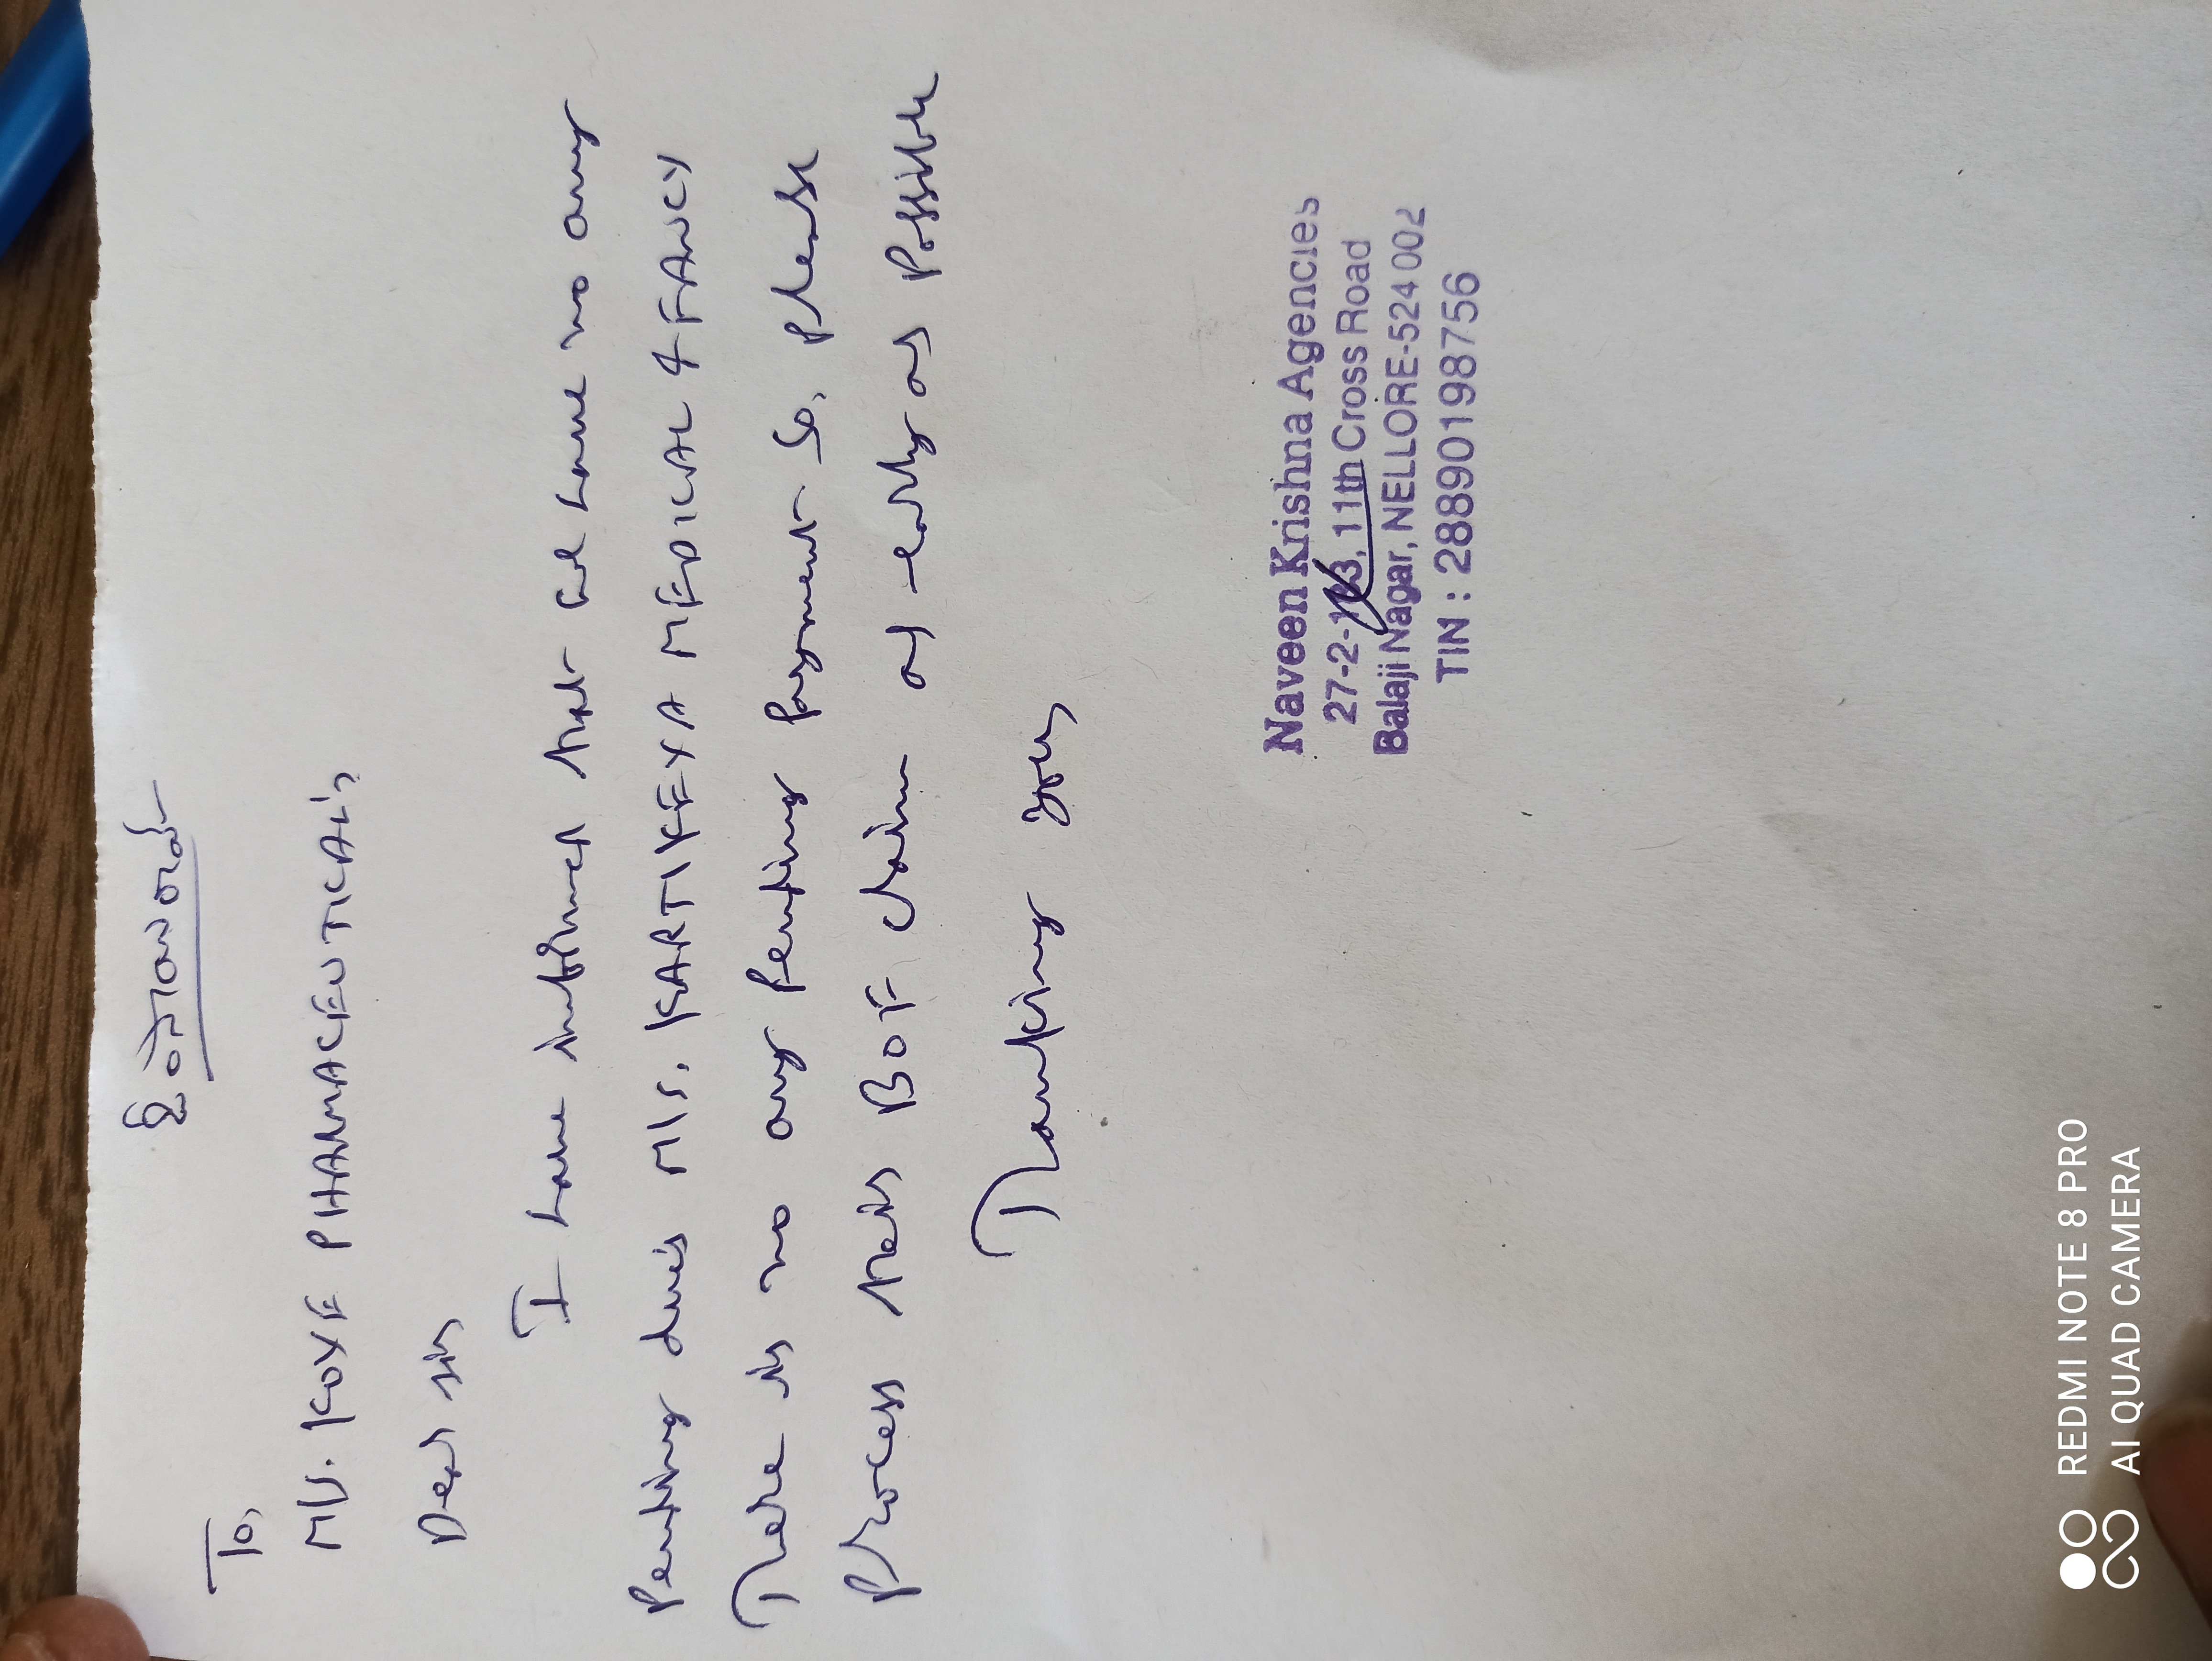 To,
M/s. KOYE PHARMACEUTICAL's
Dear sir
I have informed that we have no any
Pending due's M/s. KARTIKEYA MEDICAL & FANCY
There is no any Pending Payment So, Please
Process their BOF claim as early as Possible
Thanking you,
Naveen Krishna Agencies
27-2- 11th Cross Road
Balaji Nagar, NELLORE-524 002
TIN : 28890198756
REDMI NOTE 8 PRO
AI QUAD CAMERA